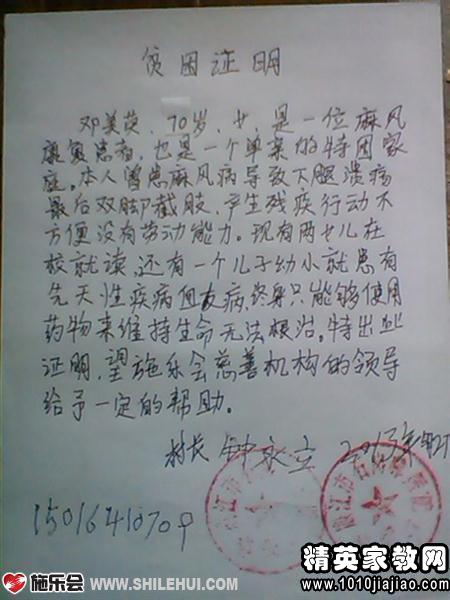 贫困证明
邓美英，70岁，女，是一位麻风
康复患者，也是一个单亲的特困家
庭。本人曾患麻风病导致下腿溃疡
最后双脚截肢，产生残疾行动不
方便没有劳动能力。现有两女儿在
校就读，还有一个儿子幼小就患有
先天性疾病血友病，终身只能够使用
药物来维持生命无法根治。特出此
证明，望施乐会慈善机构的领导
给予一定的帮助。
村长 钟永立 2013年
15016410709
施乐会 WWW.SHILEHUI.COM
精英家教网
www.1010jiajiao.com